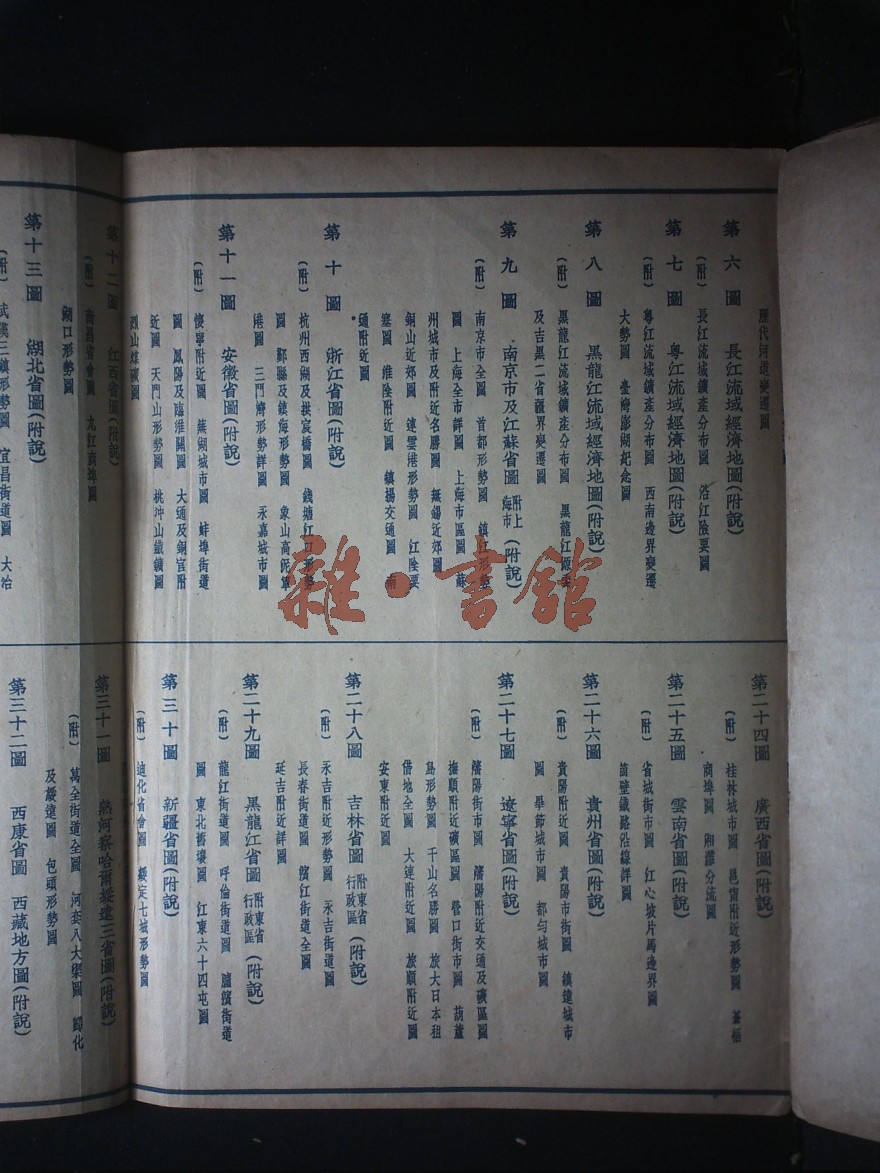 歷代河道變遷圖
第六圖 長江流域經濟地圖(附說)
(附) 長江流域鑛產分布圖 沿江險要圖
第七圖 粵江流域經濟地圖(附說)
(附) 粵江流域鑛產分布圖 西南邊界變遷
大勢圖 臺灣澎湖紀念圖
第八圖 黑龍江流域經濟地圖(附說)
(附) 黑龍江流域鑛產分布圖 黑龍江源委
及吉黑二省疆界變遷圖
第九圖 南京市及江蘇省圖 附上海市 (附說)
(附) 南京市全圖 首都形勢圖 鎮江形勢
圖 上海全市詳圖 上海市區圖 蘇
州城市及附近名勝圖 無錫近郊圖
銅山近郊圖 連雲港形勢圖 江陰要
塞圖 淮陰附近圖 鎮揚交通圖 南
通附近圖
第十圖 浙江省圖(附說)
(附) 杭州西湖及拱宸橋圖 錢塘江口形勢
圖 鄞縣及鎮海形勢圖 象山高泥軍
港圖 三門灣形勢詳圖 永嘉城市圖
第十一圖 安徽省圖(附說)
(附) 懷寧附近圖 蕪湖城市圖 蚌埠街道
圖 鳳陽及臨淮關圖 大通及銅官附
近圖 天門山形勢圖 桃沖山鐵鑛圖
烈山煤礦圖
第十二圖 江西省圖(附說)
(附) 南昌省會圖 九江商埠圖
湖口形勢圖
第十三圖 湖北省圖(附說)
(附) 武漢三鎮形勢圖 宜昌街道圖 大冶
第二十四圖 廣西省圖(附說)
(附) 桂林城市圖 邕甯附近形勢圖 蒼梧
商埠圖 湘灕分流圖
第二十五圖 雲南省圖(附說)
(附) 省城街市圖 江心坡片馬邊界圖
箇碧鐵路沿線詳圖
第二十六圖 貴州省圖(附說)
(附) 貴陽附近圖 貴陽市街圖 鎮遠城市
圖 畢節城市圖 都勻城市圖
第二十七圖 遼寧省圖(附說)
(附) 瀋陽街市圖 瀋陽附近交通及礦區圖
撫順附近礦區圖 營口街市圖 葫蘆
島形勢圖 千山名勝圖 旅大日本租
借地全圖 大連附近圖 旅順附近圖
安東附近圖
第二十八圖 吉林省圖 附東省行政區 (附說)
(附) 永吉附近形勢圖 永吉街道圖
長春街道圖 濱江街道全圖
延吉附近詳圖
第二十九圖 黑龍江省圖 附東省行政區 (附說)
(附) 龍江街道圖 呼倫街道圖 臚濱街道
圖 東北舊壤圖 江東六十四屯圖
第三十圖 新疆省圖(附說)
(附) 迪化省會圖 綏定七城形勢圖
第三十一圖 熱河察哈爾綏遠三省圖(附說)
(附) 萬全街道全圖 河套八大渠圖 歸化
及綏遠圖 包頭形勢圖
第三十二圖 西康省圖 西藏地方圖(附說)
雜·書館